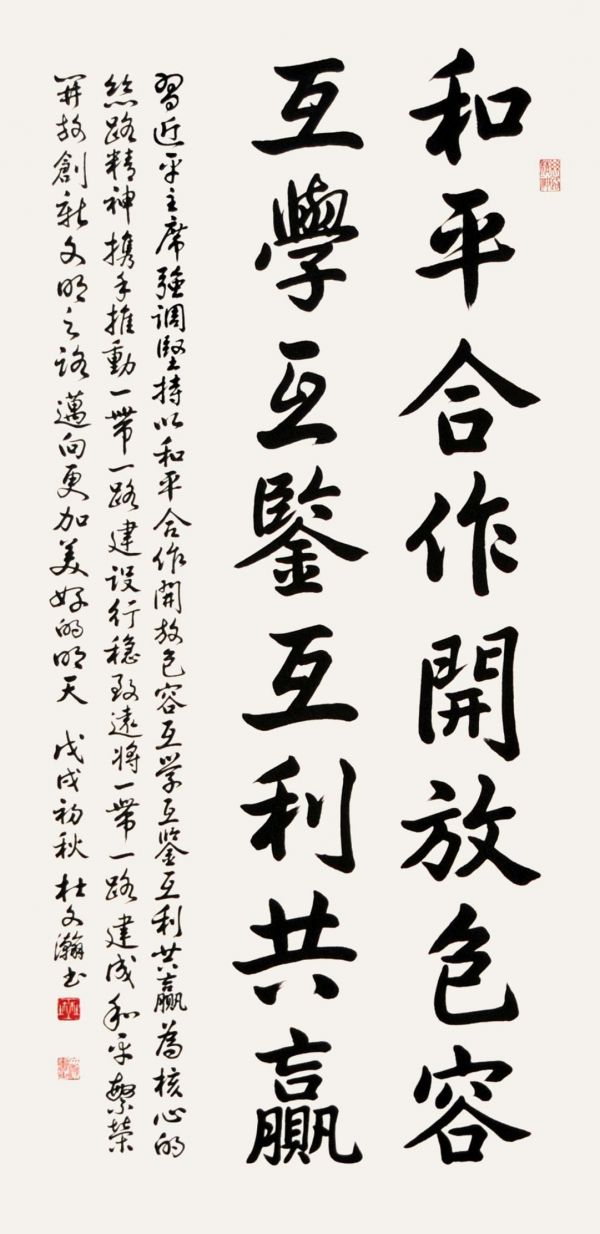 和平合作開放包容
互學互鑒互利共贏
習近平主席強调堅持以和平合作開放包容互学互鑒互利共贏為核心的
絲路精神携手推動一帶一路建设行稳致遠將一帶一路建成和平繁榮
開放創新文明之路邁向更加美好的明天 戊戌初秋 杜文瀚书